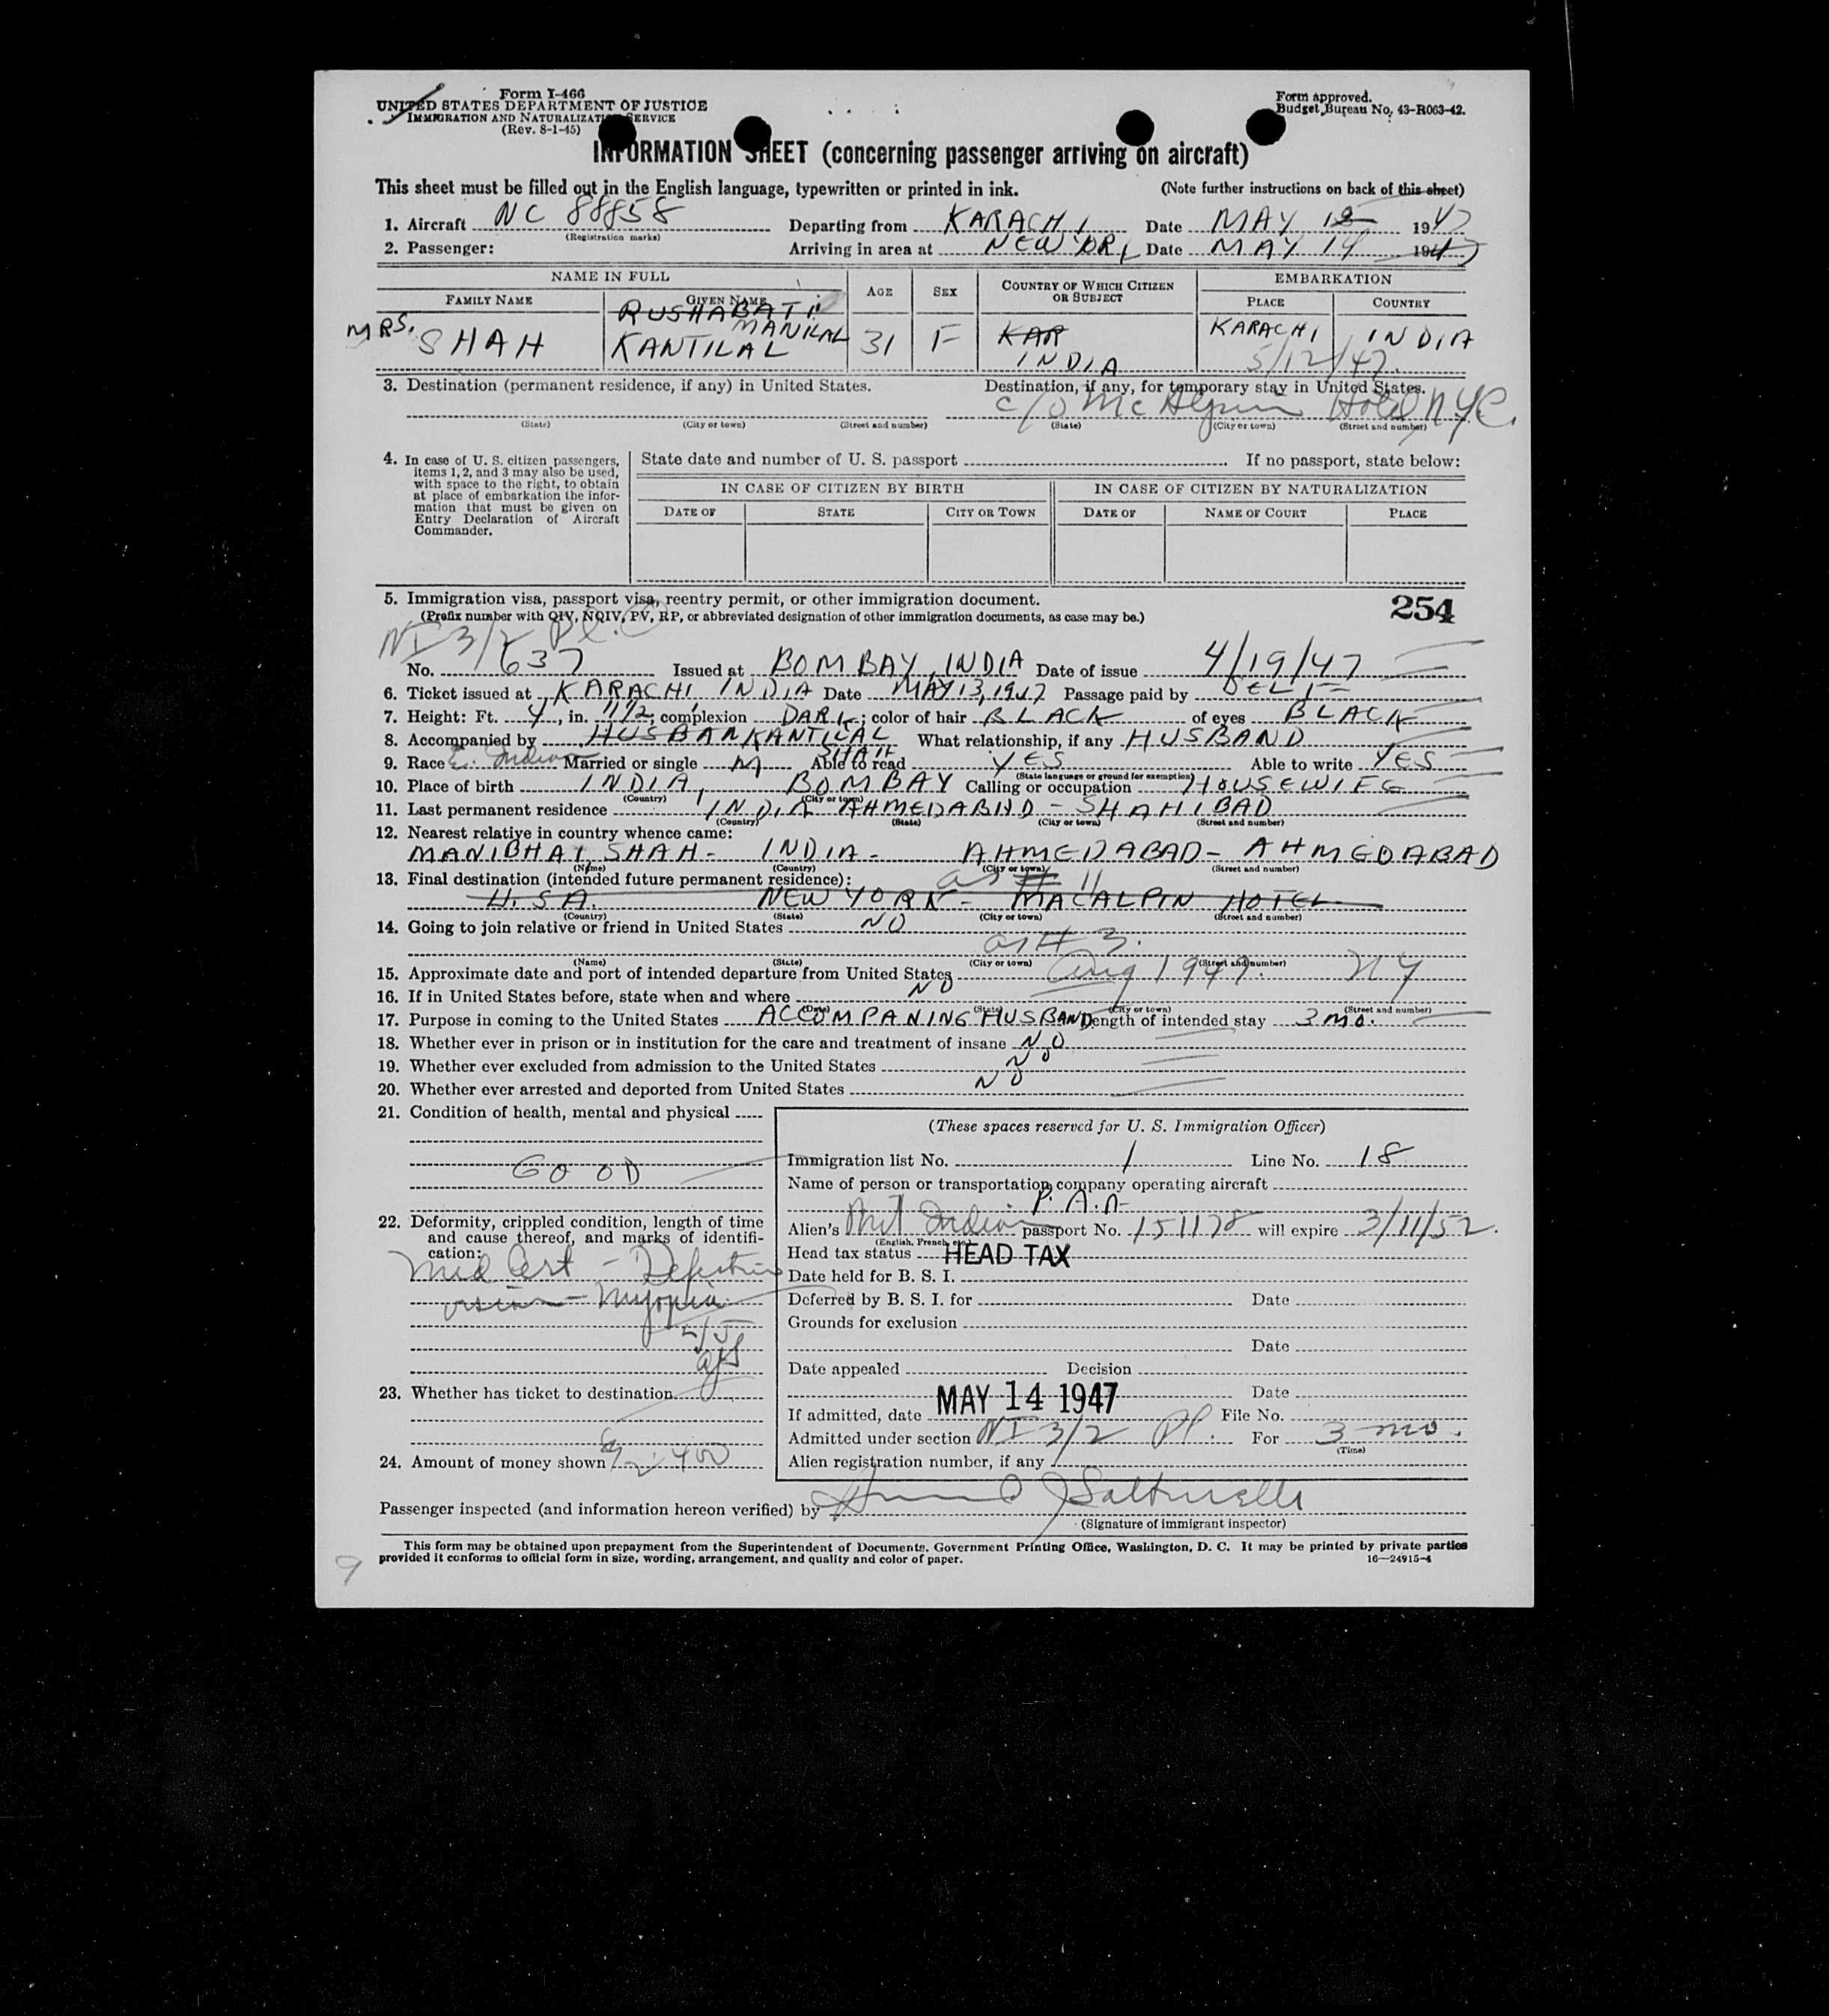 Form I-466
UNITED STATES DEPARTMENT OF JUSTICE
IMMIGRATION AND NATURALIZATION SERVICE
(Rev. 8-1-45)
Form approved.
Budget Bureau No. 43-R063-42.
INFORMATION SHEET (concerning passenger arriving on aircraft)
This sheet must be filled out in the English language, typewritten or printed in ink. (Note further instructions on back of this sheet)
1. Aircraft NC 88858 Departing from KARACHI Date MAY 12 1947
(Registration marks)
2. Passenger: Arriving in area at NEW YORK Date MAY 14 1947
NAME IN FULL AGE SEX COUNTRY OF WHICH CITIZEN OR SUBJECT EMBARKATION
FAMILY NAME GIVEN NAME PLACE COUNTRY
RUSHABATI
MRS. SHAH MANILAL KANTILAL 31 F KAR INDIA KARACHI INDIA
5/12/47.
3. Destination (permanent residence, if any) in United States. Destination, if any, for temporary stay in United States.
c/o McAlpin Hotel NYC.
(State) (City or town) (Street and number) (State) (City or town) (Street and number)
4. In case of U. S. citizen passengers, items 1, 2, and 3 may also be used, with space to the right, to obtain at place of embarkation the information that must be given on Entry Declaration of Aircraft Commander.
State date and number of U. S. passport If no passport, state below:
IN CASE OF CITIZEN BY BIRTH IN CASE OF CITIZEN BY NATURALIZATION
DATE OF STATE CITY OR TOWN DATE OF NAME OF COURT PLACE
5. Immigration visa, passport visa, reentry permit, or other immigration document. 254
(Prefix number with QIV, NQIV, PV, RP, or abbreviated designation of other immigration documents, as case may be.)
NI 3/2 Pl.
No. 637 Issued at BOMBAY, INDIA Date of issue 4/19/47
6. Ticket issued at KARACHI, INDIA Date MAY 13, 1947 Passage paid by
7. Height: Ft. 4, in. 11 1/2; complexion DARK; color of hair BLACK of eyes BLACK
8. Accompanied by HUSBAN KANTILAL SHAH What relationship, if any HUSBAND
9. Race E. Indian Married or single M Able to read YES Able to write YES
(State language or ground for exemption)
10. Place of birth INDIA, BOMBAY Calling or occupation HOUSEWIFE
(Country) (City or town)
11. Last permanent residence INDIA AHMEDABAD - SHAHIBAD
(Country) (State) (City or town) (Street and number)
12. Nearest relative in country whence came:
MANIBHAI SHAH - INDIA - AHMEDABAD - AHMEDABAD
(Name) (Country) (City or town) (Street and number)
13. Final destination (intended future permanent residence): as # 11
U.S.A. NEW YORK - MACALPIN HOTEL
(Country) (State) (City or town) (Street and number)
14. Going to join relative or friend in United States NO
as # 3.
(Name) (State) (City or town) (Street and number)
15. Approximate date and port of intended departure from United States Aug 1947. NY
16. If in United States before, state when and where NO
(Date) (State) (City or town) (Street and number)
17. Purpose in coming to the United States ACCOMPANING HUSBAND Length of intended stay 3 mo.
18. Whether ever in prison or in institution for the care and treatment of insane NO
19. Whether ever excluded from admission to the United States NO
20. Whether ever arrested and deported from United States NO
21. Condition of health, mental and physical
GOOD
22. Deformity, crippled condition, length of time and cause thereof, and marks of identification:
Med Cert - Defective
vision - Myopia
23. Whether has ticket to destination
24. Amount of money shown 400
(These spaces reserved for U. S. Immigration Officer)
Immigration list No. 1 Line No. 18
Name of person or transportation company operating aircraft
P. A. A-
Alien's Brit Indian passport No. 151178 will expire 3/11/52.
(English, French, etc.)
Head tax status HEAD TAX
Date held for B. S. I.
Deferred by B. S. I. for Date
Grounds for exclusion
Date
Date appealed Decision
Date
If admitted, date MAY 14 1947 File No.
Admitted under section NI 3/2 Pl. For 3 mo.
(Time)
Alien registration number, if any
Passenger inspected (and information hereon verified) by
(Signature of immigrant inspector)
This form may be obtained upon prepayment from the Superintendent of Documents, Government Printing Office, Washington, D. C. It may be printed by private parties
provided it conforms to official form in size, wording, arrangement, and quality and color of paper. 16—24915-4
9